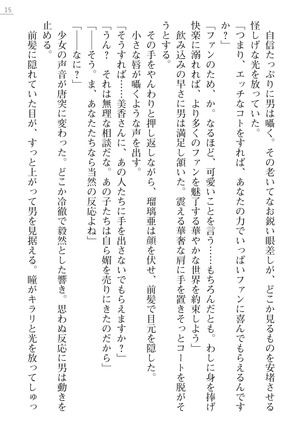 15
自信たっぷりに男は囁く。その老いてなお鋭い眼差しが、どこか見るものを安堵させる
怪しげな光を放っていた。
「つまり、エッチなコトをすれば、あなたの力でいっぱいファンに喜んでもらえるんです
か？」
「ファンのため、か。なるほど、可愛いことを言う……もちろんだとも。わしに身を捧げ
快楽に溺れれば、より多くのファンを魅了する華やかな世界を約束しよう」
飲み込みの早さに男は満足し頷いた。震える華奢な肩に手を置きそっとコートを脱がそ
うとする。
その手をやんわりと押し返しながら、瑠璃亜は顔を伏せ、前髪で目元を隠した。
小さな唇が囁くような声を出す。
「そうすれば……美香さんに、あの人たちに手を出さないでもらえますか？」
「うん？　それは無理な相談だな。あの子たちは自ら媚を売りにきたのだから」
「――そう。ま、あなたたちなら当然の反応よね」
「なに？」
少女の声音が唐突に変わった。どこか冷徹で毅然とした響き。思わぬ反応に男は動きを
止める。
前髪に隠れていた目が、すっと上がって男を見据える。瞳がキラリと光を放ってしゅっ